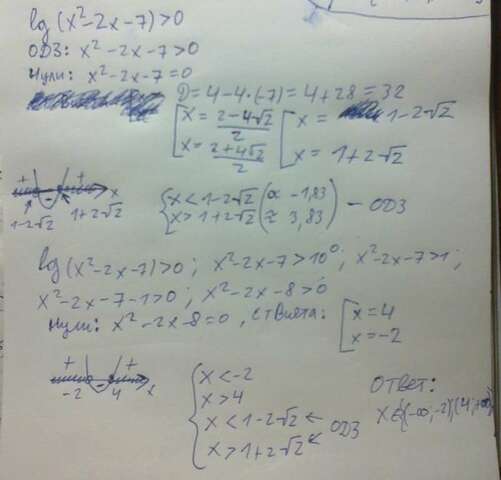 lg(x²-2x-7)>0
ОДЗ: x²-2x-7>0
Нули: x²-2x-7=0
D=4-4·(-7)=4+28=32
[x=(2-4√2)/2 [x=1-2√2
[x=(2+4√2)/2 [x=1+2√2
+ - + x
1-2√2 1+2√2
{x<1-2√2 (≈ -1,83)
{x>1+2√2 (≈ 3,83) - ОДЗ
lg(x²-2x-7)>0; x²-2x-7>10⁰; x²-2x-7>1;
x²-2x-7-1>0; x²-2x-8>0
Нули: x²-2x-8=0, с т Виета: [x=4
[x=-2
+ - +
-2 4 x
{x<-2
x>4
x<1-2√2 ←
x>1+2√2 ← ОДЗ
Ответ:
x∈(-∞;-2);(4;+∞)